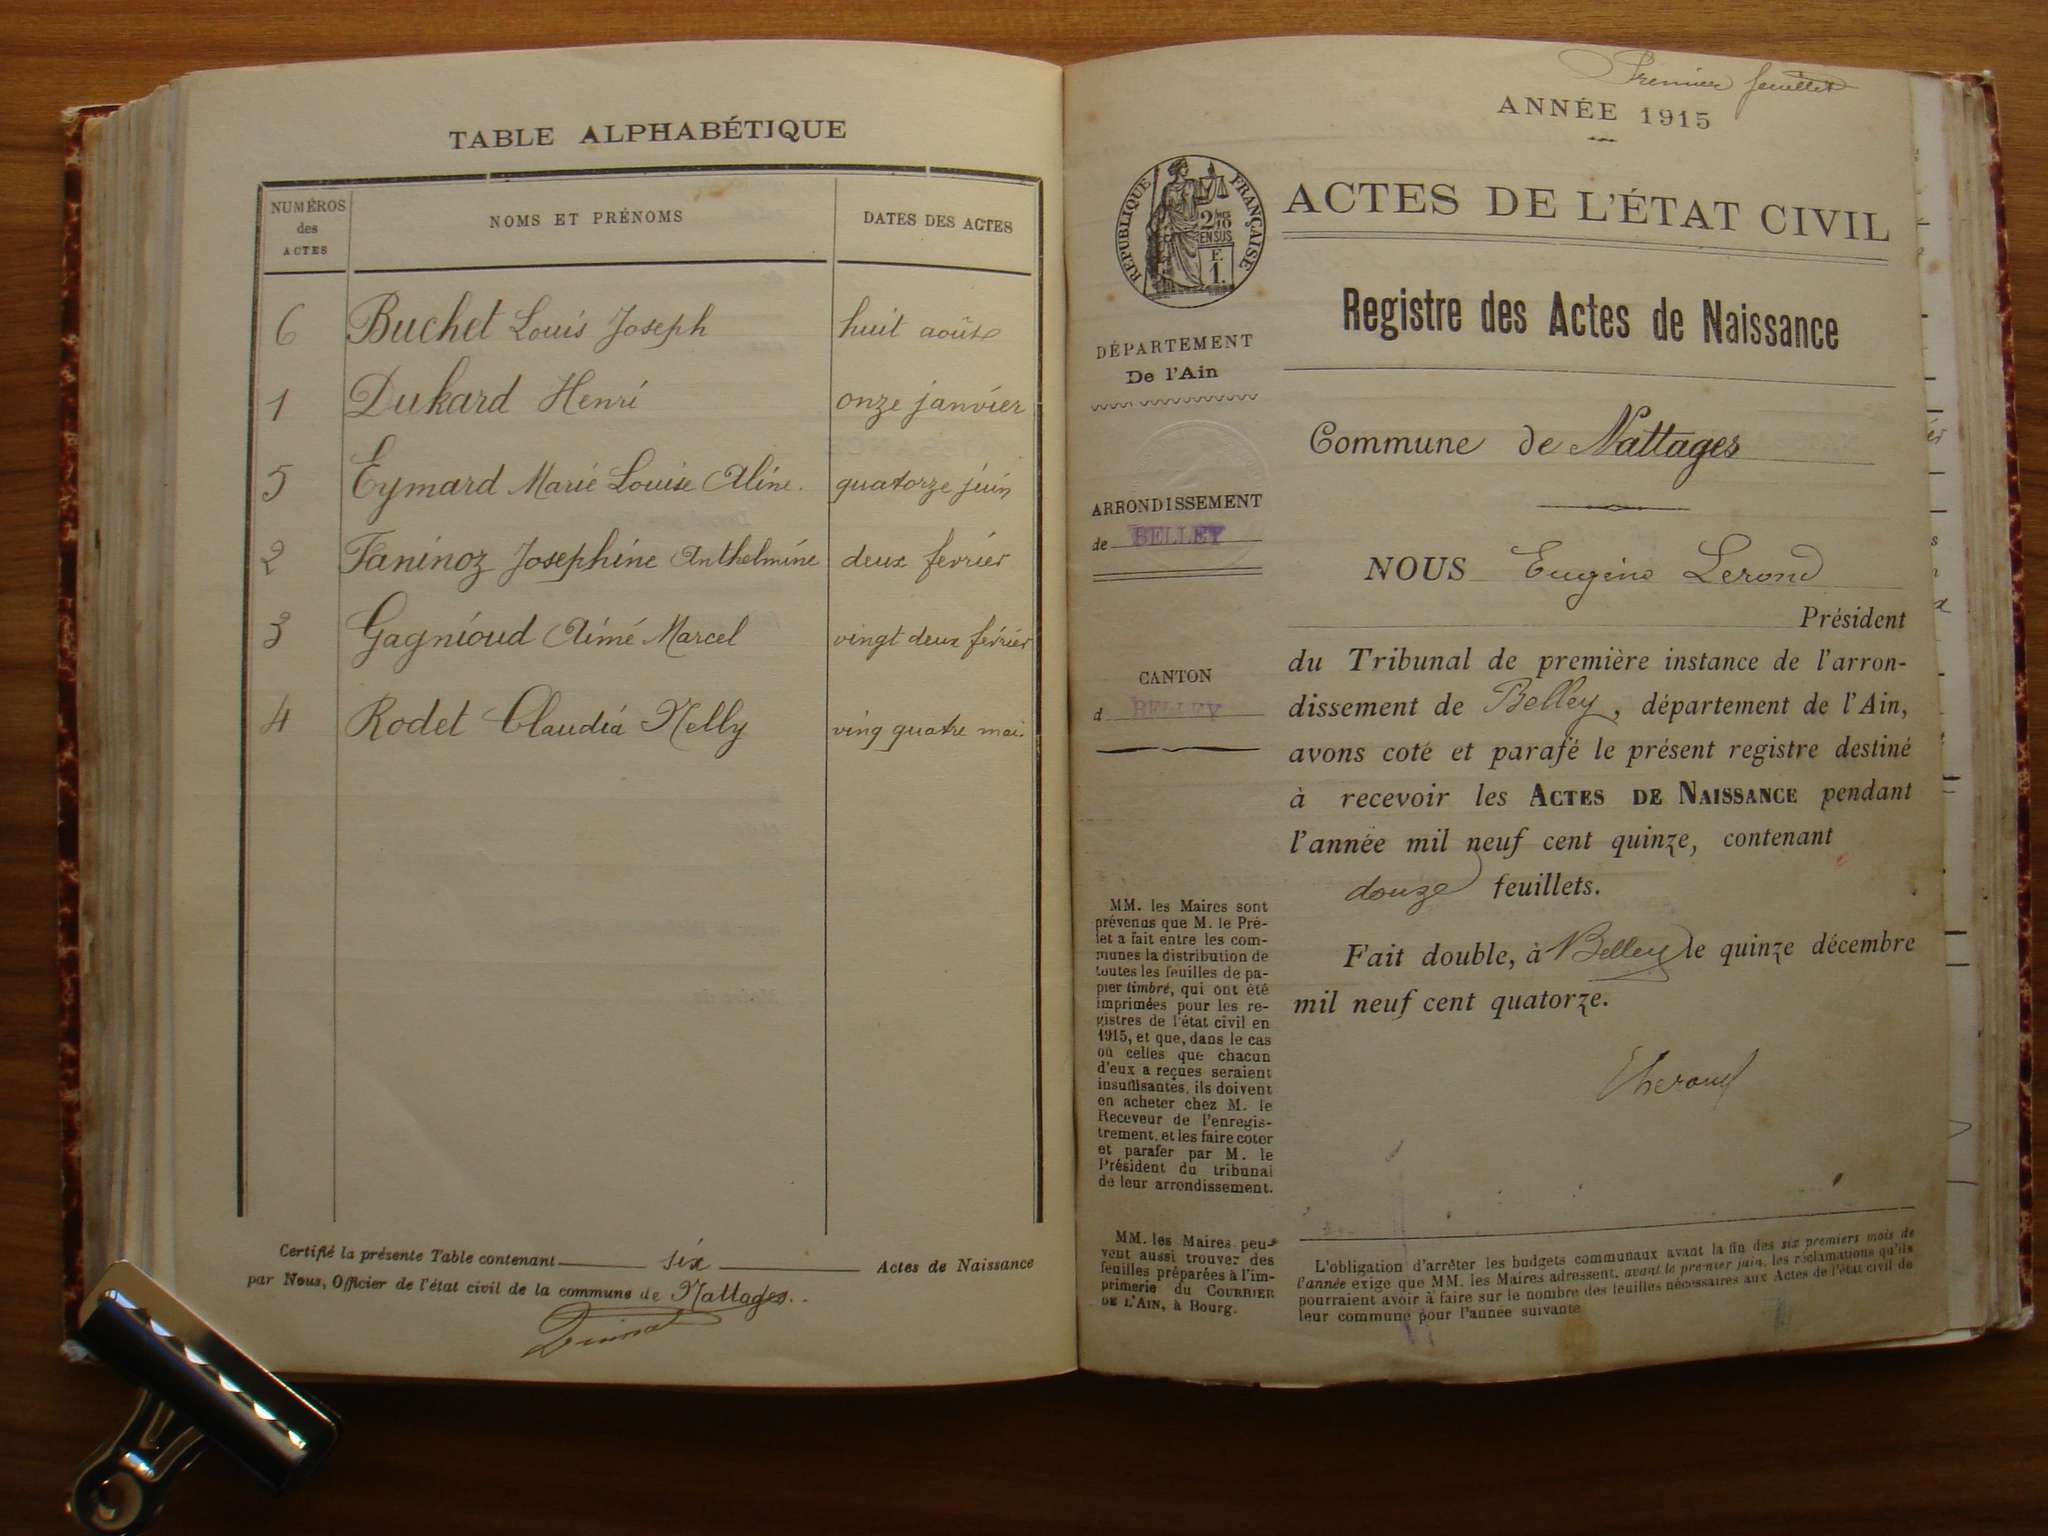 TABLE ALPHABÉTIQUE
NUMÉROS des ACTES NOMS ET PRÉNOMS DATES DES ACTES
6 Buchet Louis Joseph huit août
1 Dukard Henri onze janvier
5 Eymard Marie Louise Aline. quatorze juin
2 Faninoz Josephine Anthelmine deux fevrier
3 Gagnioud Aimé Marcel vingt deux février
4 Rodet Claudia Nelly ving quatre mai
Certifié la présente Table contenant six Actes de Naissance
par Nous, Officier de l'état civil de la commune de Nattages.
Premier feuillet
ANNÉE 1915
RÉPUBLIQUE FRANÇAISE
2/10 EN SUS
F. 1.
ACTES DE L'ÉTAT CIVIL
Registre des Actes de Naissance
DÉPARTEMENT
De l'Ain
Commune de Nattages
ARRONDISSEMENT
de BELLEY
CANTON
d BELLEY
NOUS Eugène Lerond
Président
du Tribunal de première instance de l'arron-
dissement de Belley, département de l'Ain,
avons coté et parafé le présent registre destiné
à recevoir les ACTES DE NAISSANCE pendant
l'année mil neuf cent quinze, contenant
douze feuillets.
Fait double, à Belley le quinze décembre
mil neuf cent quatorze.
MM. les Maires sont
prévenus que M. le Pré-
fet a fait entre les com-
munes la distribution de
toutes les feuilles de pa-
pier timbré, qui ont été
imprimées pour les re-
gistres de l'état civil en
1915, et que, dans le cas
où celles que chacun
d'eux a reçues seraient
insuffisantes, ils doivent
en acheter chez M. le
Receveur de l'enregis-
trement, et les faire coter
et parafer par M. le
Président du tribunal
de leur arrondissement.
MM. les Maires peu-
vent aussi trouver des
feuilles préparées à l'im-
primerie du COURRIER
DE L'AIN, à Bourg.
L'obligation d'arrêter les budgets communaux avant la fin des six premiers mois de
l'année exige que MM. les Maires adressent, avant le premier juin, les réclamations qu'ils
pourraient avoir à faire sur le nombre des feuilles nécessaires aux Actes de l'état civil de
leur commune pour l'année suivante